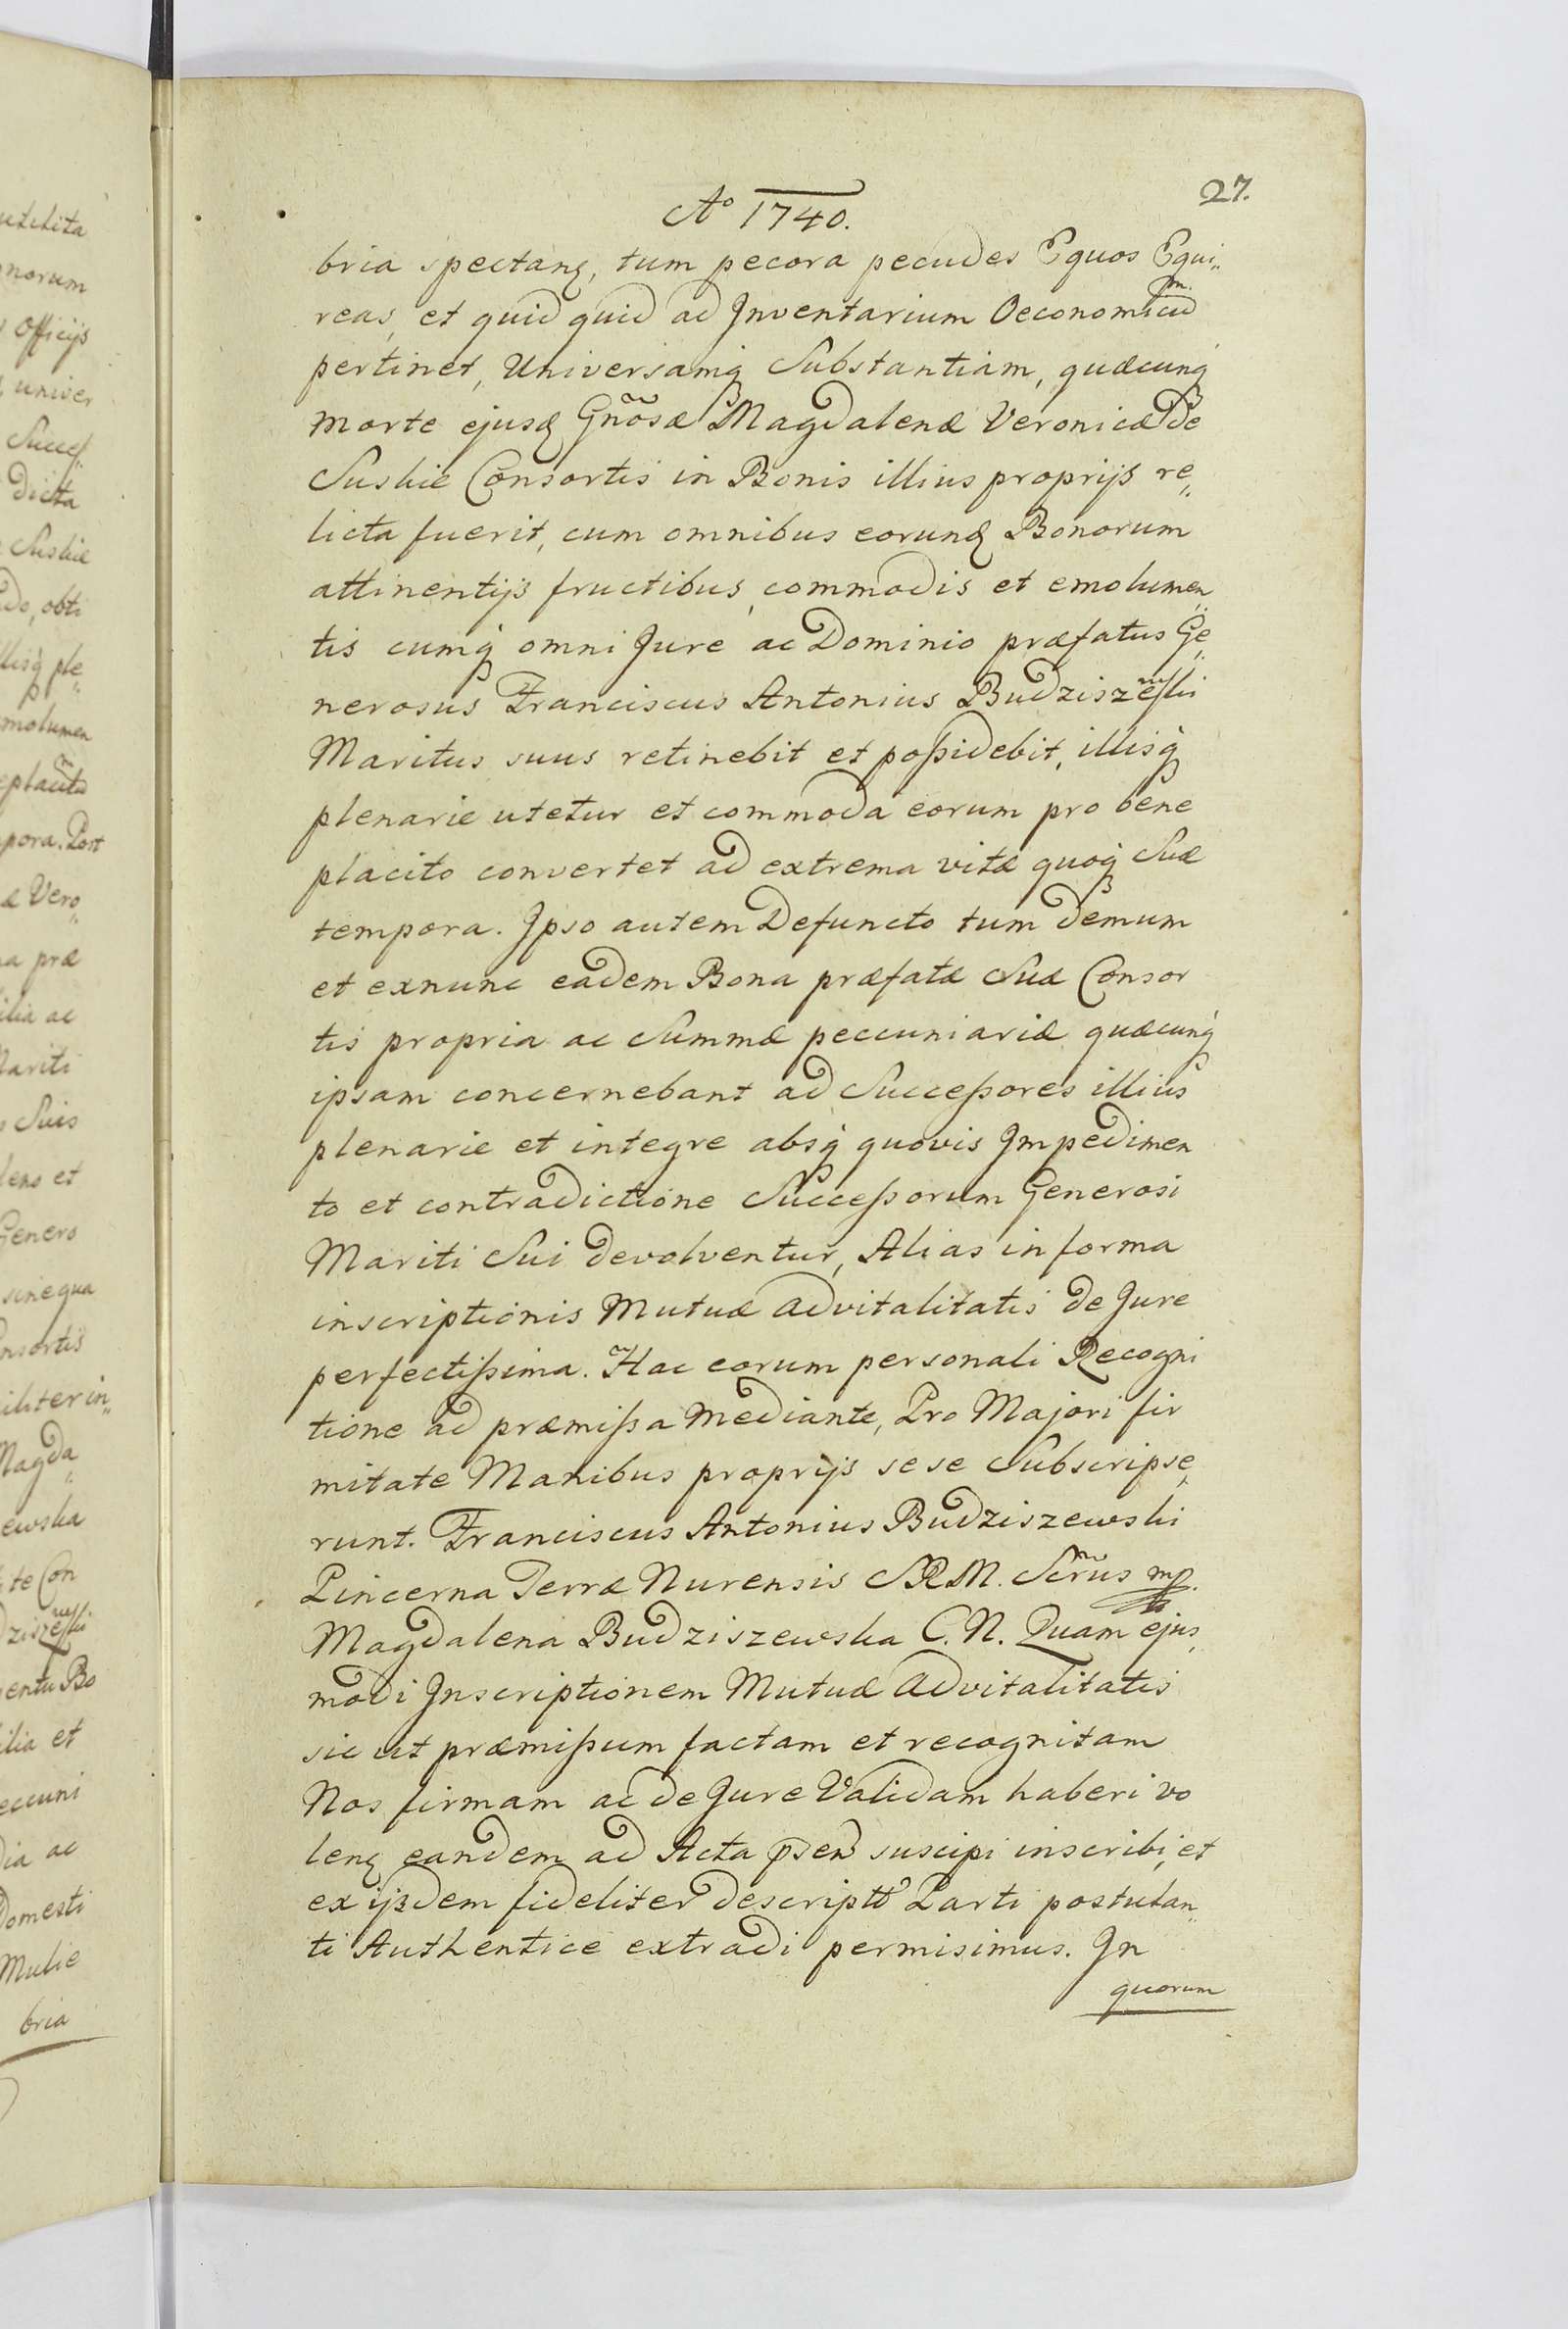 27.
Aº 1740.
bria spectanꝫ, tum pecora pecudes Equos Equi„
reas, et quid quid ad Inventarium Oeconomicũ
pertinet, Universamq́ Substantiam, quæcunq́
morte ejusꝫ Gñosæ Magdalenæ Veronicæ De
Suskie Consortis in Bonis illius proprijs re„
licta fuerit, cum omnibus eorunꝫ Bonorum
attinentijs fructibus, commodis et emolumen„
tis cumq́ omni Jure ac Dominio præfatus Ge„
nerosus Franciscus Antonius Budziszewski
Maritus suus retinebit et poſsidebit, illisq́
plenarie utetur et commoda eorum pro bene
placito convertet ad extrema vitæ quoq́ Suæ
tempora. Ipso autem Defuncto tum demum
et exnunc eadem Bona præfatæ Suæ Consor
tis propria ac Summæ peccuniariæ quæcunq́
ipsam concernebant ad Succeſsores illius
plenarie et integre absq́ quovis Impedimen
to et contradictione Succeſsorum Generosi
Mariti Sui devolventur, Alias in forma
inscriptionis Mutuæ Advitalitatis de Jure
perfectiſsima. Hac eorum personali Recogni
tione ad præmiſsa mediante, Pro Majori fir
mitate Manibus proprijs sese Subscripse„
runt. Franciscus Antonius Budziszewski
Pincerna Terræ Nurensis S.R.M. Scr̃ius mp.
Magdalena Budziszewska C. N. Quam ejus„
modi Inscriptionem Mutuæ Advitalitatis
sic ut præmiſsum factam et recognitam
Nos firmam ac de Jure Validam haberi vo
lenꝫ eandem ad Acta p̃sen suscipi inscribi, et
ex ijsdem fideliter descriptã Parti postulan„
ti Authentice extradi permisimus. In
quorum